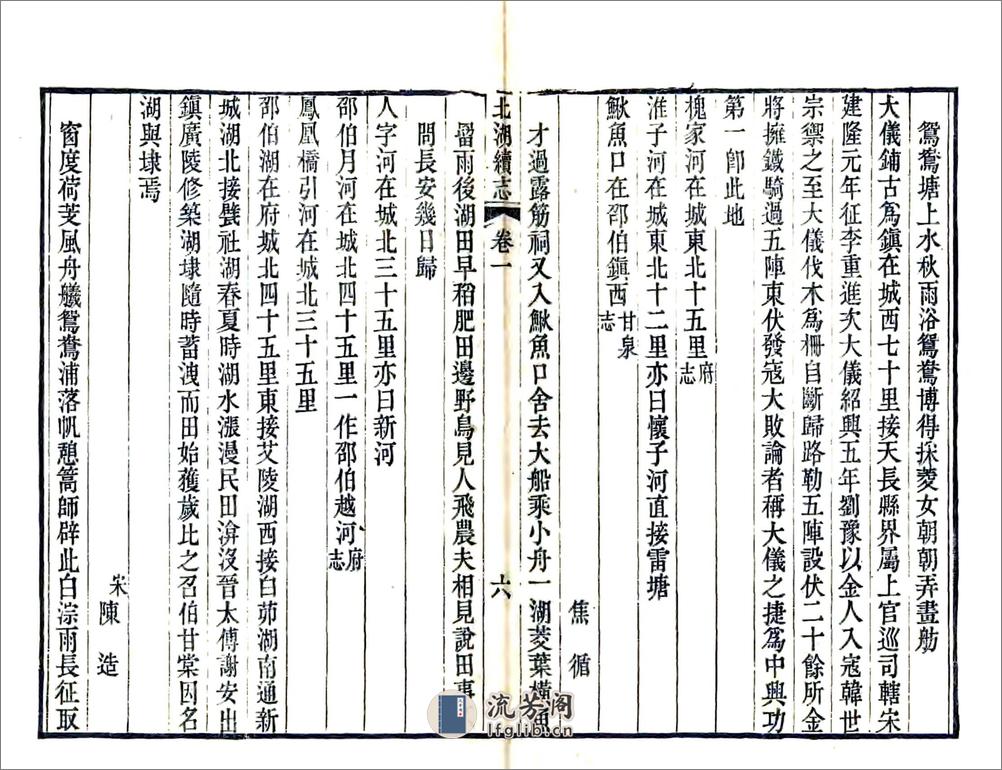 鴛鴦塘上水秋雨浴鴛鴦博得採菱女朝朝弄畫舫
大儀鋪古爲鎮在城西七十里接天長縣界屬上官巡司轄宋
建隆元年征李重進次大儀紹興五年劉豫以金人入寇韓世
宗禦之至大儀伐木爲柵自斷歸路勒五陣設伏二十餘所金
將擁鐵騎過五陣東伏發寇大敗論者稱大儀之捷爲中興功
第一卽此地
槐家河在城東北十五里府志
淮子河在城東北十二里亦曰懷子河直接雷塘
鰍魚口在邵伯鎮西甘泉志
焦循
才過露筋祠又入鰍魚口舍去大船乘小舟一湖菱葉橫魚
北湖續志 卷一 六
罶雨後湖田早稻肥田邊野鳥見人飛農夫相見說田事
問長安幾日歸
人字河在城北三十五里亦曰新河
邵伯月河在城北四十五里一作邵伯越河府志
鳳凰橋引河在城北三十五里
邵伯湖在府城北四十五里東接艾陵湖西接白茆湖南通新
城湖北接甓社湖春夏時湖水漲漫民田渰沒晉太傅謝安出
鎮廣陵修築湖埭隨時蓄洩而田始獲歲比之召伯甘棠因名
湖與埭焉
宋陳造
窗度荷芰風舟艤鴛鴦浦落帆憩篙師辟此白淙雨長征取
流芳閣
lfglib.cn